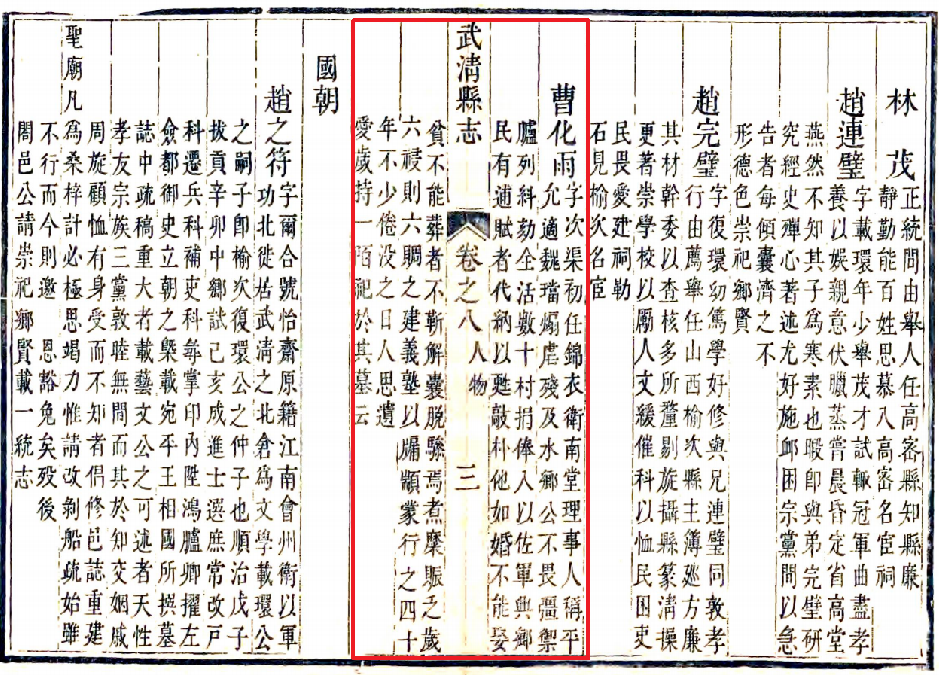 林 茂 正統間由舉人任高密縣知縣廉
靜勤能百姓思慕入高密名宦祠
趙連璧 字載環年少舉茂才試輒冠軍曲盡孝
養以娛親意伏臘蒸嘗晨昏定省高堂
燕然不知其子為寒素也暇即與弟完璧研
究經史殫心著述尤好施卹困宗黨間以急
告者每傾囊濟之不
形德色崇祀鄉賢
趙完璧 字復環幼篤學好修與兄連璧同敦孝
行由薦舉任山西榆次縣主簿廵方廉
其材幹委以查核多所釐剔旋攝縣篆清操
更著崇學校以勵人文緩催科以恤民困吏
民畏愛建祠勒
石見榆次名宦
曹化雨 字次渠初任錦衣衛南堂理事人稱平
允適魏璫煽虐殘及水鄉公不畏彊禦
臚列科劾全活數十村捐俸入以佐軍興鄉
民有逋賦者代納以甦敲朴他如婚不能娶
武清縣志 卷之八 人物 三
貧不能葬者不靳解囊脫驂焉煮糜賑之歲
六祲則六賙之建義塾以牖顓蒙行之四十
年不少倦没之日人思遺
愛歲持一陌祀於其墓云
國朝
趙之符 字爾合號怡齋原籍江南會州衛以軍
功北徙居武清之北倉為文學載環公
之嗣子即榆次復環公之仲子也順治戊子
拔貢辛卯中鄉試己亥成進士選庶常改戶
科遷兵科補吏科尋掌印內陞鴻臚卿擢左
僉都御史立朝之槩載宛平王相國所撰墓
誌中疏稿重大者載藝文公之可述者天性
孝友宗族三黨敦睦無間而其於知交姻戚
周旋顧恤有身受而不知者倡修邑誌重建
聖廟凡為桑梓計必極思竭力惟請改剝船疏始雖
不行而今則邀 恩豁免矣歿後
闔邑公請崇祀鄉賢載一統志